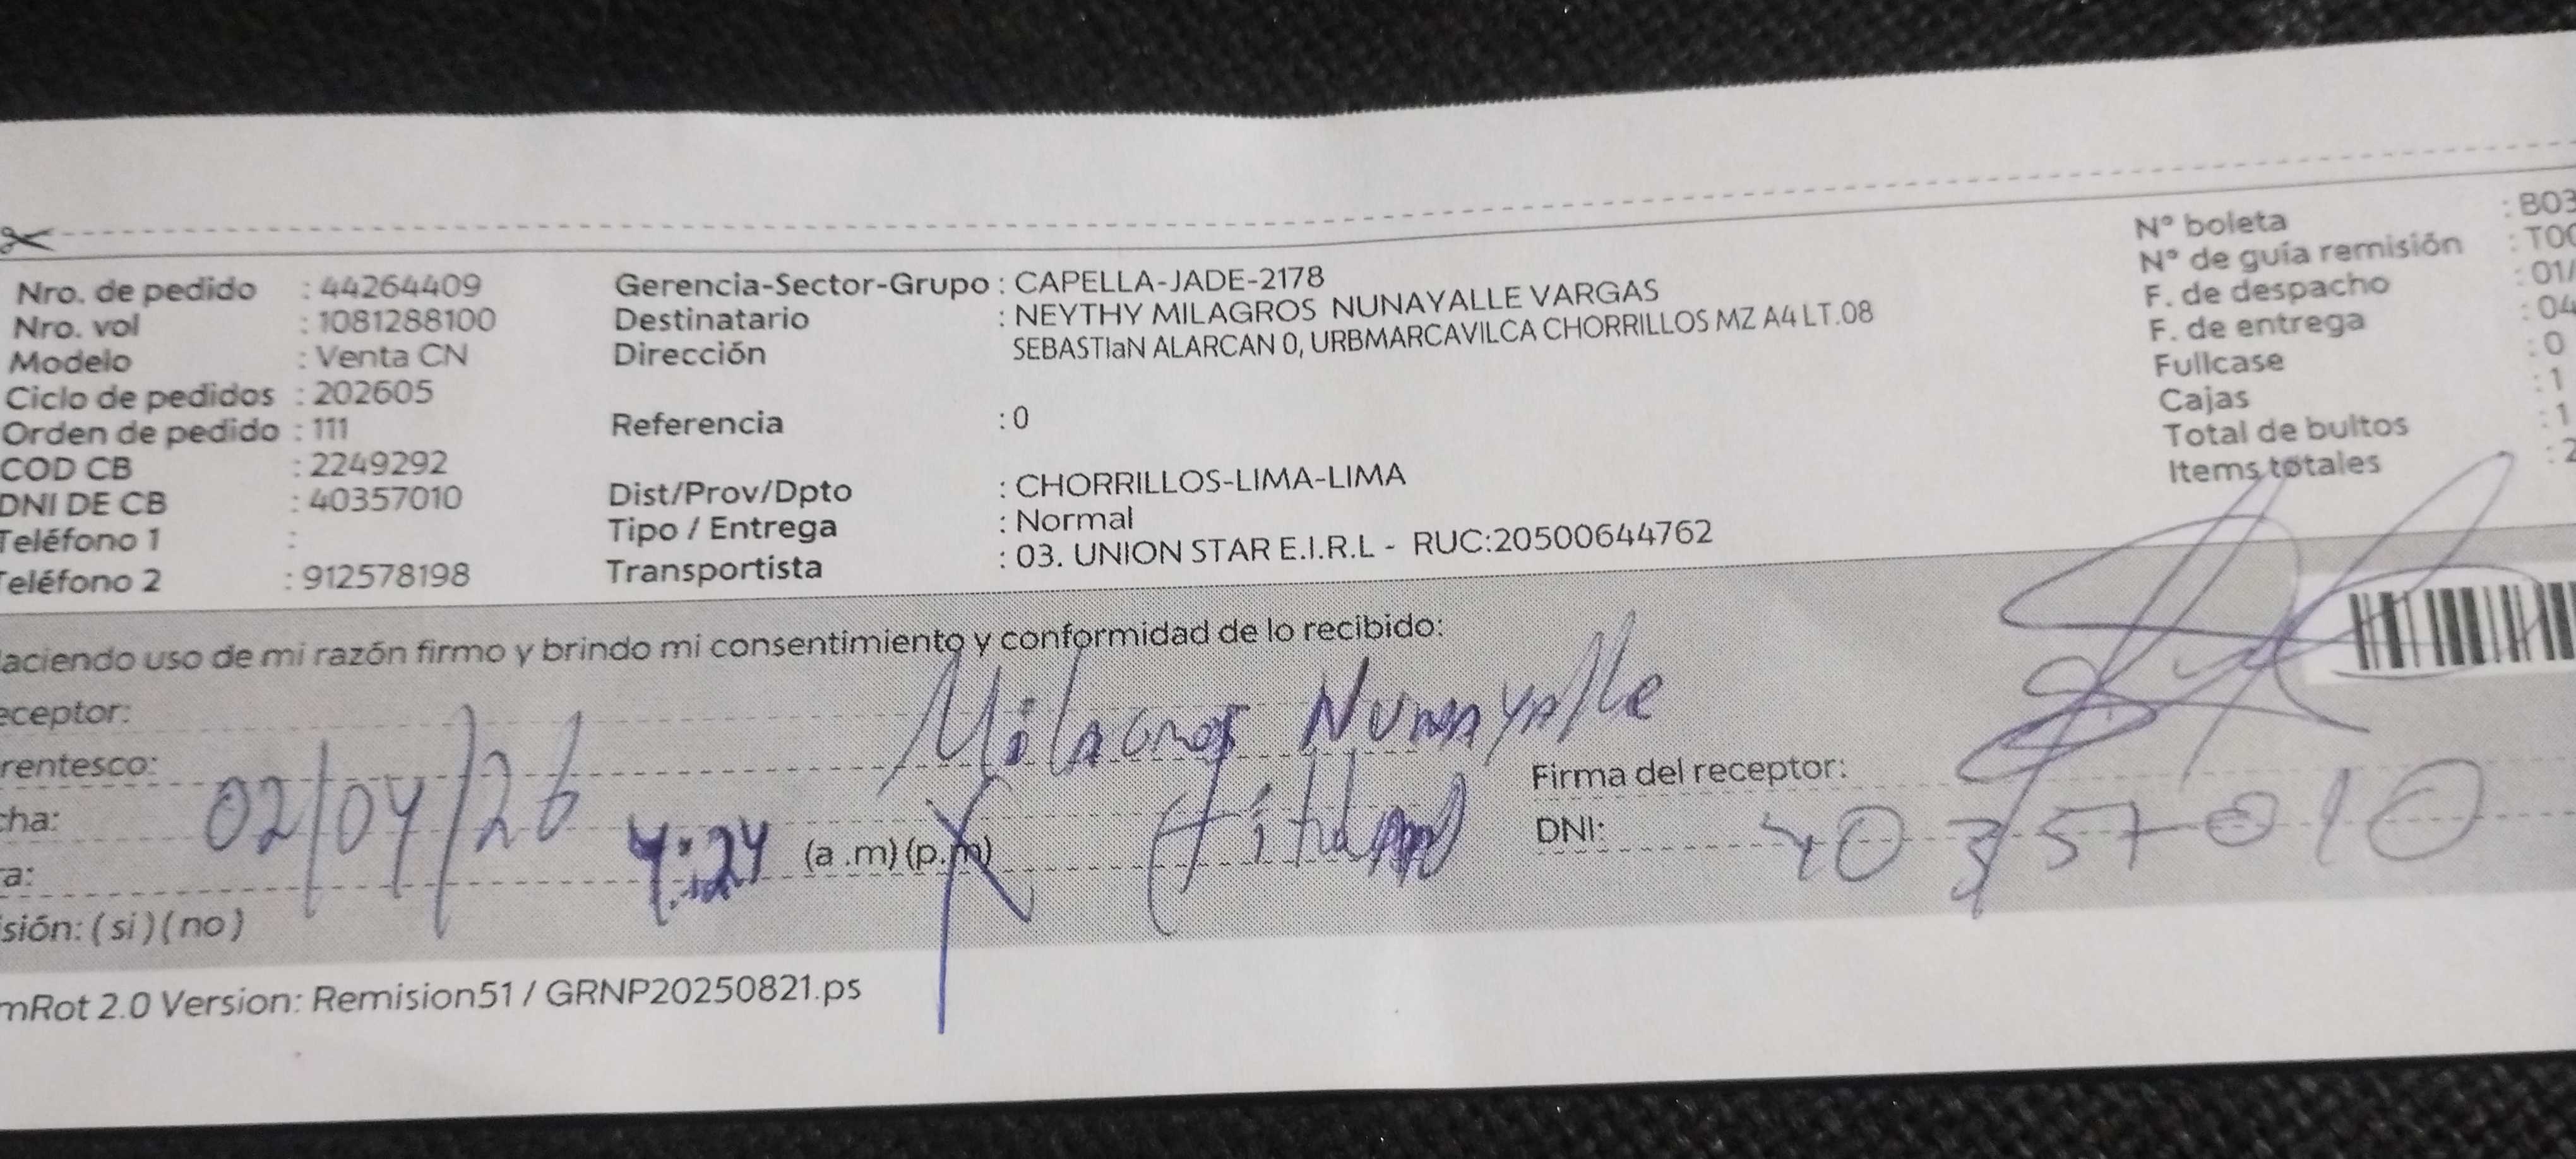 Nro. de pedido : 44264409
Nro. vol : 1081288100
Modelo : Venta CN
Ciclo de pedidos : 202605
Orden de pedido : 111
COD CB : 2249292
DNI DE CB : 40357010
Teléfono 1 :
Teléfono 2 : 912578198
Gerencia-Sector-Grupo : CAPELLA-JADE-2178
Destinatario : NEYTHY MILAGROS NUNAYALLE VARGAS
Dirección SEBASTIaN ALARCAN 0, URBMARCAVILCA CHORRILLOS MZ A4 LT.08
Referencia : 0
Dist/Prov/Dpto : CHORRILLOS-LIMA-LIMA
Tipo / Entrega : Normal
Transportista : 03. UNION STAR E.I.R.L - RUC:20500644762
N° boleta : B03
N° de guía remisión : T00
F. de despacho : 01/
F. de entrega : 04
Fullcase : 0
Cajas : 1
Total de bultos : 1
Items totales : 2
aciendo uso de mi razón firmo y brindo mi consentimiento y conformidad de lo recibido:
eceptor: Milagros Nunayalle
rentesco: titular
cha: 02/04/26
a: 4:24 (a .m) (p.m)
Firma del receptor:
DNI: 40357010
sión: ( si ) ( no )
mRot 2.0 Version: Remision51 / GRNP20250821.ps